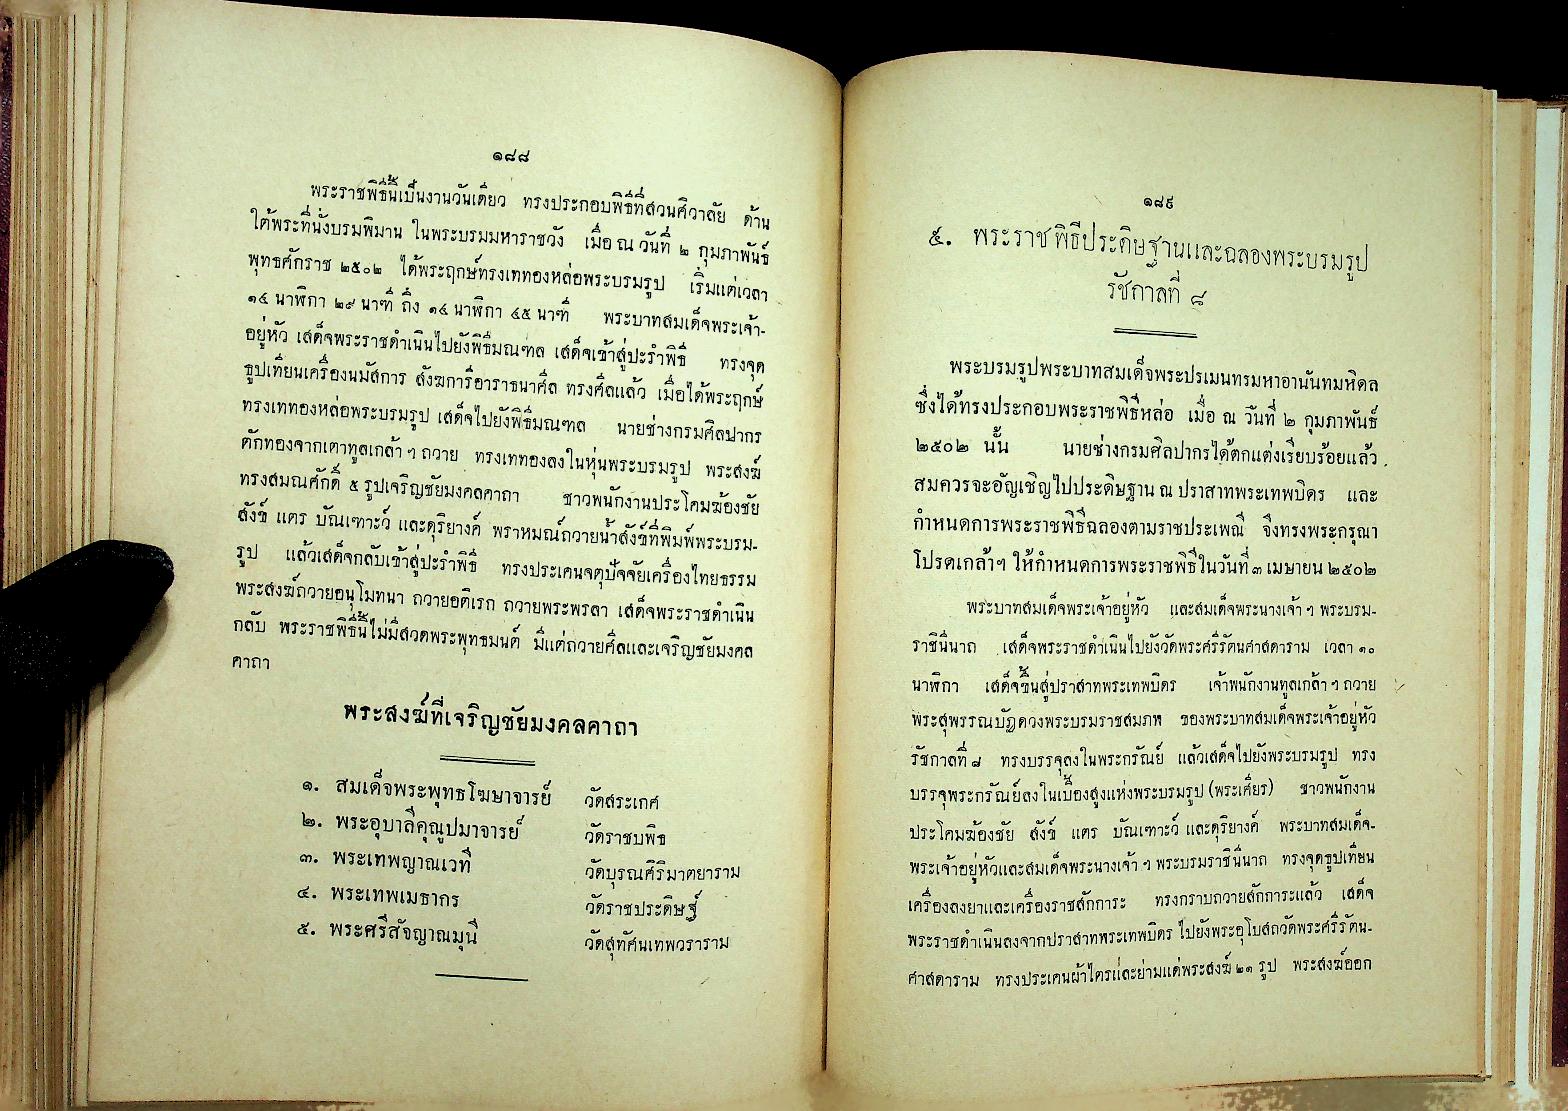 ๑๘๘
พระราชพิธีนี้เป็นงานวันเดียว ทรงประกอบพิธีที่สวนศิวาลัย ด้าน
ใต้พระที่นั่งบรมพิมาน ในพระบรมมหาราชวัง เมื่อ ณ วันที่ ๒ กุมภาพันธ์
พุทธศักราช ๒๕๐๒ ได้พระฤกษ์ทรงเททองหล่อพระบรมรูป เริ่มแต่เวลา
๑๔ นาฬิกา ๒๙ นาที ถึง ๑๔ นาฬิกา ๔๕ นาที พระบาทสมเด็จพระเจ้า-
อยู่หัว เสด็จพระราชดำเนินไปยังพิธีมณฑล เสด็จเข้าสู่ปะรำพิธี ทรงจุด
ธูปเทียนเครื่องนมัสการ สังฆการีอาราธนาศีล ทรงศีลแล้ว เมื่อได้พระฤกษ์
ทรงเททองหล่อพระบรมรูป เสด็จไปยังพิธีมณฑล นายช่างกรมศิลปากร
ตักทองจากเตาทูลเกล้า ฯ ถวาย ทรงเททองลงในหุ่นพระบรมรูป พระสงฆ์
ทรงสมณศักดิ์ ๕ รูปเจริญชัยมงคลคาถา ชาวพนักงานประโคมฆ้องชัย
สังข์ แตร บัณเฑาะว์ และดุริยางค์ พราหมณ์ถวายน้ำสังข์ที่พิมพ์พระบรม-
รูป แล้วเสด็จกลับเข้าสู่ปะรำพิธี ทรงประเคนจตุปัจจัยเครื่องไทยธรรม
พระสงฆ์ถวายอนุโมทนา ถวายอดิเรก ถวายพระพรลา เสด็จพระราชดำเนิน
กลับ พระราชพิธีนี้ไม่มีสวดพระพุทธมนต์ มีแต่ถวายศีลและเจริญชัยมงคล
คาถา
พระสงฆ์ที่เจริญชัยมงคลคาถา
๑. สมเด็จพระพุทธโฆษาจารย์ วัดสระเกศ
๒. พระอุบาลีคุณูปมาจารย์ วัดราชบพิธ
๓. พระเทพญาณเวที วัดบุรณศิริมาตยาราม
๔. พระเทพเมธากร วัดราชประดิษฐ์
๕. พระศรีสัจญาณมุนี วัดสุทัศนเทพวราราม
๑๘๙
๕. พระราชพิธีประดิษฐานและฉลองพระบรมรูป
รัชกาลที่ ๘
พระบรมรูปพระบาทสมเด็จพระปรเมนทรมหาอานันทมหิดล
ซึ่งได้ทรงประกอบพระราชพิธีหล่อ เมื่อ ณ วันที่ ๒ กุมภาพันธ์
๒๕๐๒ นั้น นายช่างกรมศิลปากรได้ตกแต่งเรียบร้อยแล้ว
สมควรจะอัญเชิญไปประดิษฐาน ณ ปราสาทพระเทพบิดร และ
กำหนดการพระราชพิธีฉลองตามราชประเพณี จึงทรงพระกรุณา
โปรดเกล้าฯ ให้กำหนดการพระราชพิธีในวันที่ ๓ เมษายน ๒๕๐๒
พระบาทสมเด็จพระเจ้าอยู่หัว และสมเด็จพระนางเจ้า ฯ พระบรม-
ราชินีนาถ เสด็จพระราชดำเนินไปยังวัดพระศรีรัตนศาสดาราม เวลา ๑๐
นาฬิกา เสด็จขึ้นสู่ปราสาทพระเทพบิดร เจ้าพนักงานทูลเกล้า ฯ ถวาย
พระสุพรรณบัฏดวงพระบรมราชสมภพ ของพระบาทสมเด็จพระเจ้าอยู่หัว
รัชกาลที่ ๘ ทรงบรรจุลงในพระกรัณย์ แล้วเสด็จไปยังพระบรมรูป ทรง
บรรจุพระกรัณย์ลงในเบื้องสูงแห่งพระบรมรูป (พระเศียร) ชาวพนักงาน
ประโคมฆ้องชัย สังข์ แตร บัณเฑาะว์ และดุริยางค์ พระบาทสมเด็จ-
พระเจ้าอยู่หัวและสมเด็จพระนางเจ้า ฯ พระบรมราชินีนาถ ทรงจุดธูปเทียน
เครื่องลงยาและเครื่องราชสักการะ ทรงกราบถวายสักการะแล้ว เสด็จ
พระราชดำเนินลงจากปราสาทพระเทพบิดร ไปยังพระอุโบสถวัดพระศรีรัตน-
ศาสดาราม ทรงประเคนผ้าไตรและย่ามแด่พระสงฆ์ ๒๑ รูป พระสงฆ์ออก